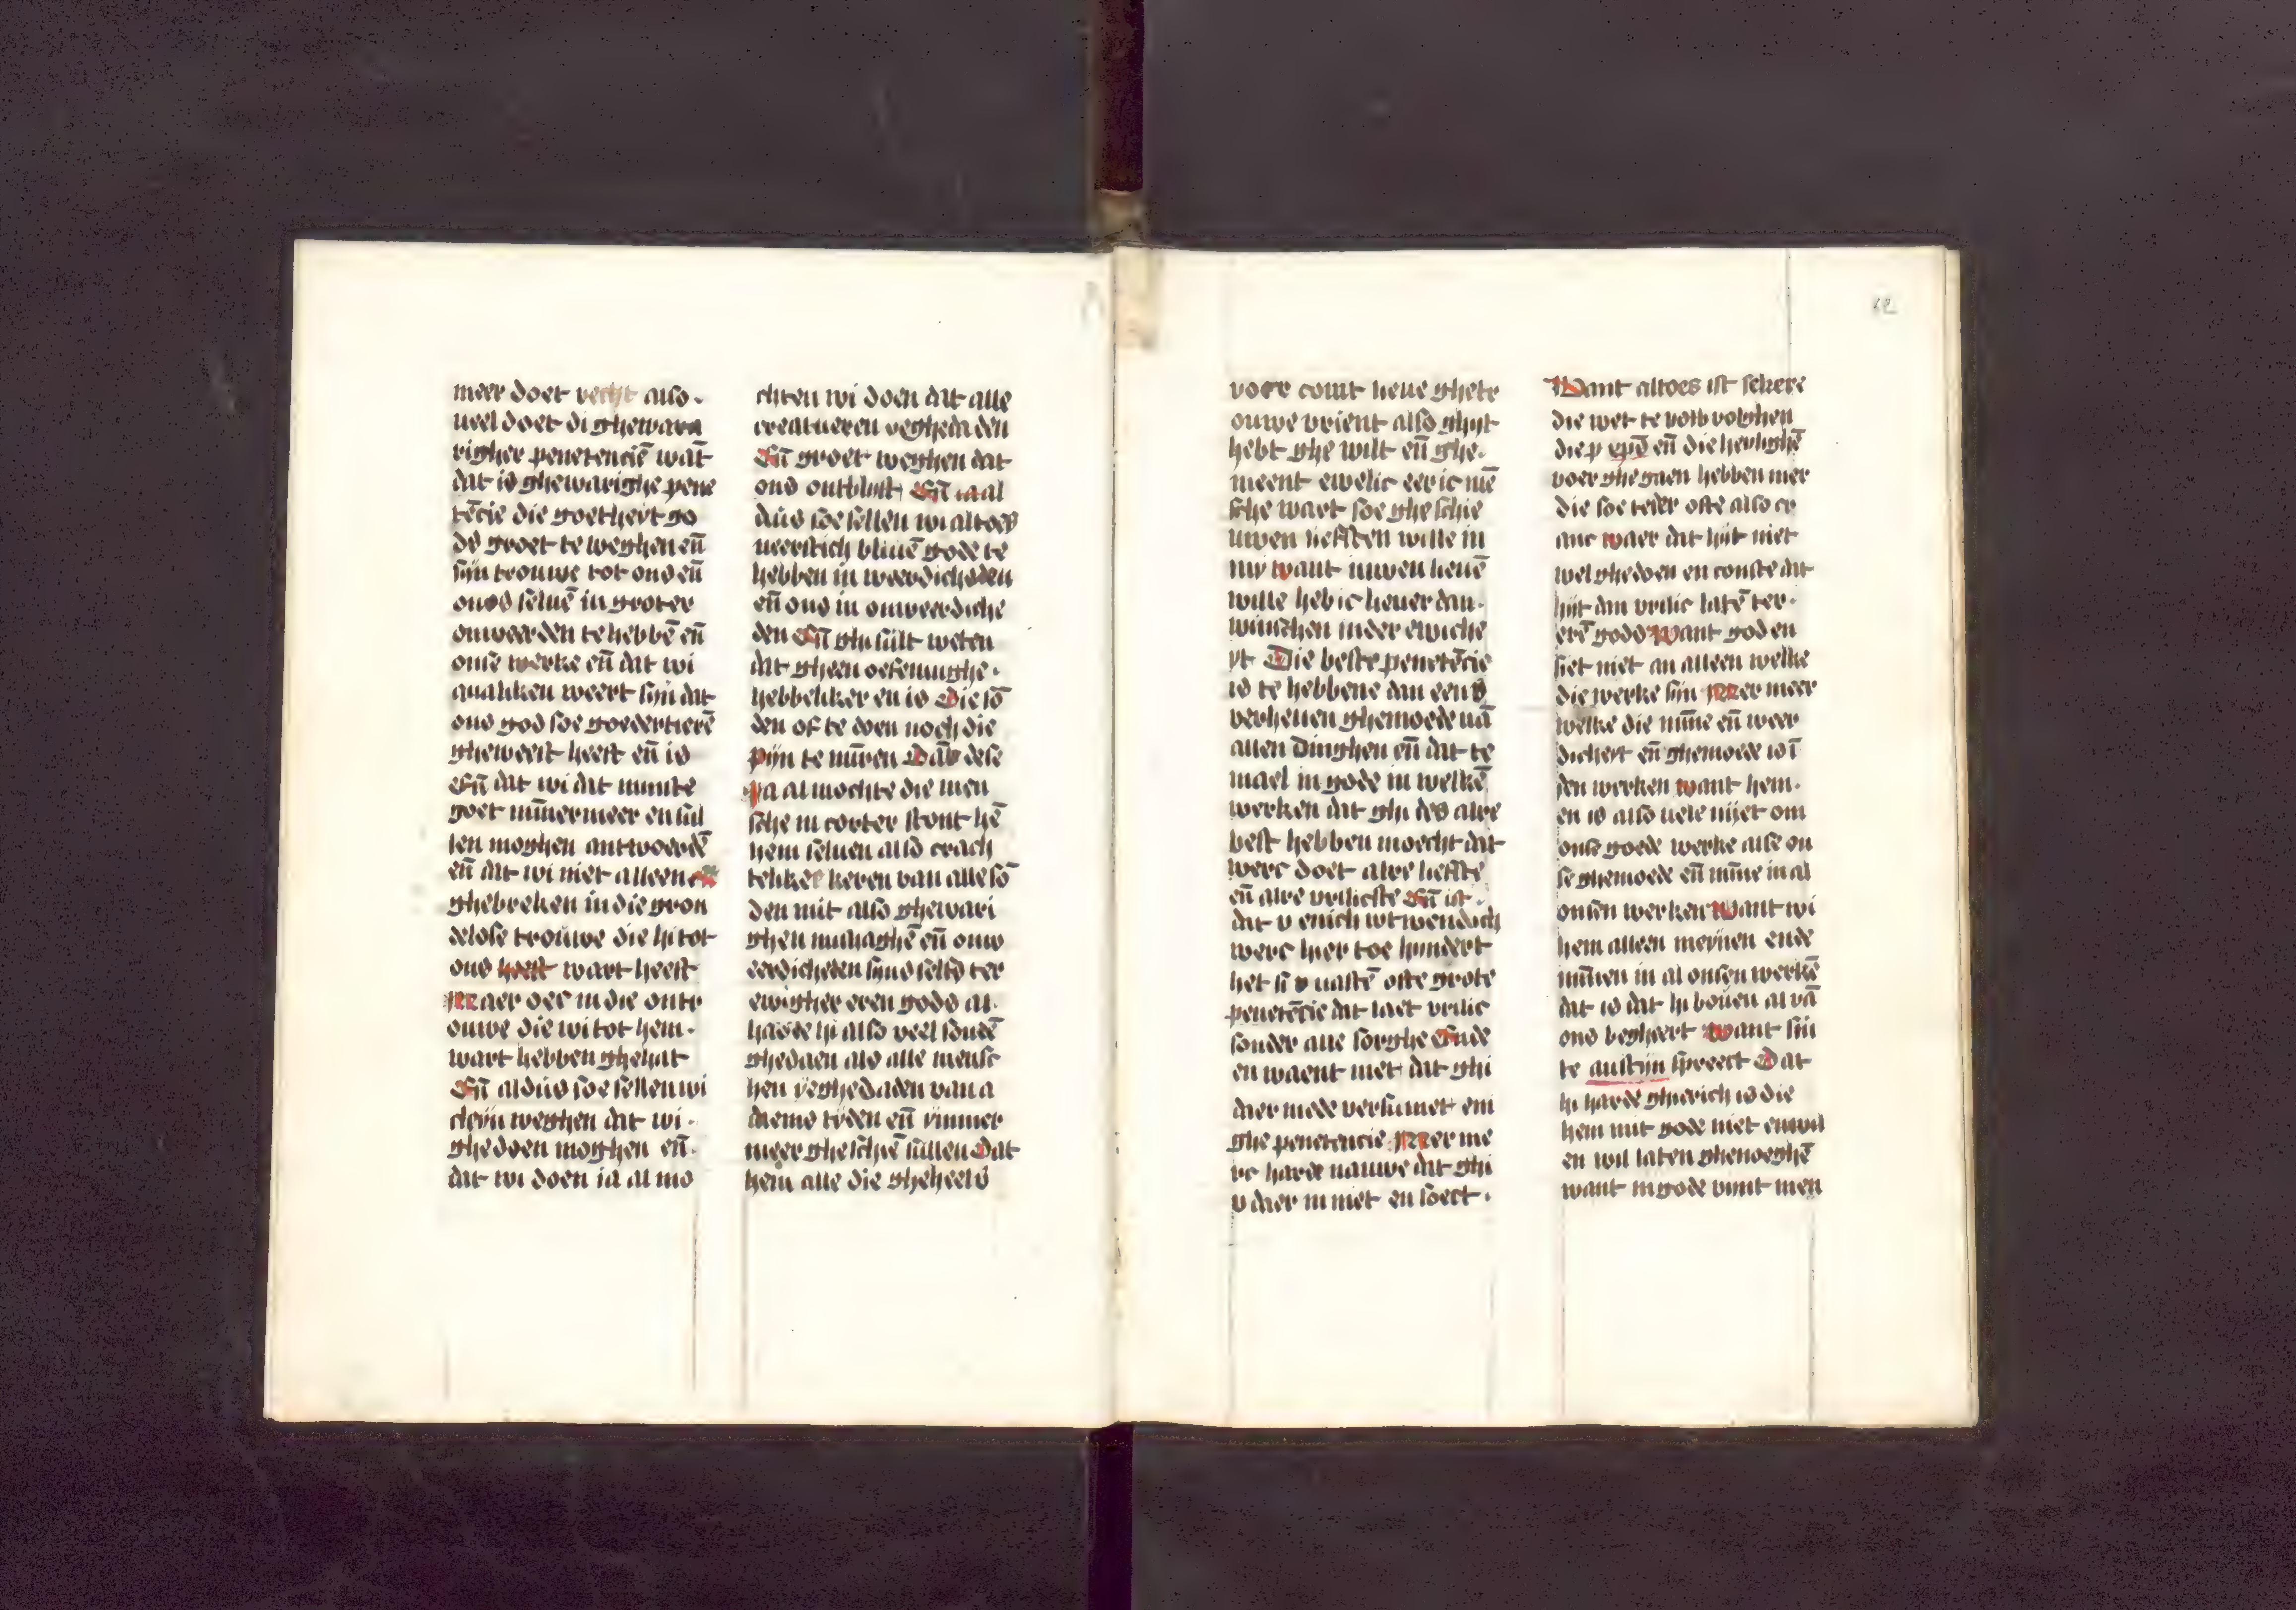 meer doet vecht also.
ueel doet di ghewara
righer penetenciē wāt
dat is ghewarighe pene
tēcie die goetheyt go
ds groet te weghen eñ
sijn trouwe tot ons eñ
onss seluē in groter
onweerden te hebbē eñ
onse werke eñ dat wi
qualiken weert sijn dat
ons god soe goedertierē
gheweest heeft eñ is
Eñ dat wi dat minste
goet nūmermeer en sul
len moghen antwoerdē
eñ dat wi niet alleen
ghebreken in die gron
delose trouwe die hi tot
ons heeft wart heeft
Maer oec in die ontr
ouwe die wi tot hem.
wart hebben ghehat
Eñ aldus soe sellen wi
cleyn weghen dat wi.
ghedoen moghen eñ.
dat wi doen ia al mo
chten wi doen dat alle
creatueren veghedaden
Eñ groet weghen dat
ons ontblijft Eñ in al
dus soe sellen wi altoes
neerstich bliuē gode te
hebben in weerdicheden
eñ ons in onweerdiche
den Eñ ghi sult weten
dat gheen oefeninghe.
hebbeliker en is Die sō
den of te doen noch die
pijn te mīren Dā dese
Ja al mochte die men
sche in corter stont hē
hem seluen also crach
teliker keren van alle sō
den mit also ghewari
ghen mishaghē eñ onw
eerdicheden sijns selfs ter
ewigher eren gods al.
hadde hi also veel sondē
ghedaen als alle mensc
hen yeghedaden van a
daems tyden eñ ymmer
meer gheschiē sullen Dat
hem alle die gheheels
vore comt lieue ghetr
ouwe vrient also ghijt
hebt ghe wilt eñ ghe.
meent ewelic eer ic mē
sche wart soe gheschie
uwen liefsten wille in
my want uwen lieuē
wille heb ic lieuer dan.
wunschen in der ewiche
yt Die beste penetēcie
is te hebbene dan een
verheuen ghemoede uā
allen dinghen eñ dat te
mael in gode in welkē
werken dat ghi des alre
best hebben moecht dat
werc doet alre liefste
eñ alre vrilicste Eñ ist.
dat v enich wtwendich
werc hier toe hindert
het si v uastē ofte grote
penetēcie dat laet vrilic
sonder alle sorghe Ende
en waent niet dat ghi
daer mede versumet eni
ghe penetencie Mer me
rc harde nauwe dat ghi
v daer in niet en soect.
Want altoes ist sekere
die wet te volvolghen
die p epē eñ die heylighē
voer ghegaen hebben mer
die soe teder ofte also cr
anc waer dat hijt niet
wel ghedoen en conste dat
hijt dan vrilic latē ter.
erē gods Want god en
siet niet an alleen welke
die werke sijn Mer meer
welke die mīne eñ weer
dicheyt eñ ghemoede is ī
den werken want hem.
en is also uele nijet om
onse goede werke alse on
se ghemoede eñ mīne in al
onsen werken Want wi
hem alleen meynen ende
mīnen in al onsen werkē
dat is dat hi bouen al vā
ons begheert Want sin
te austijn spreect Dat
hi harde ghierich is die
hem mit gode niet en wil
en wil laten ghenoeghē
want in gode vijnt men